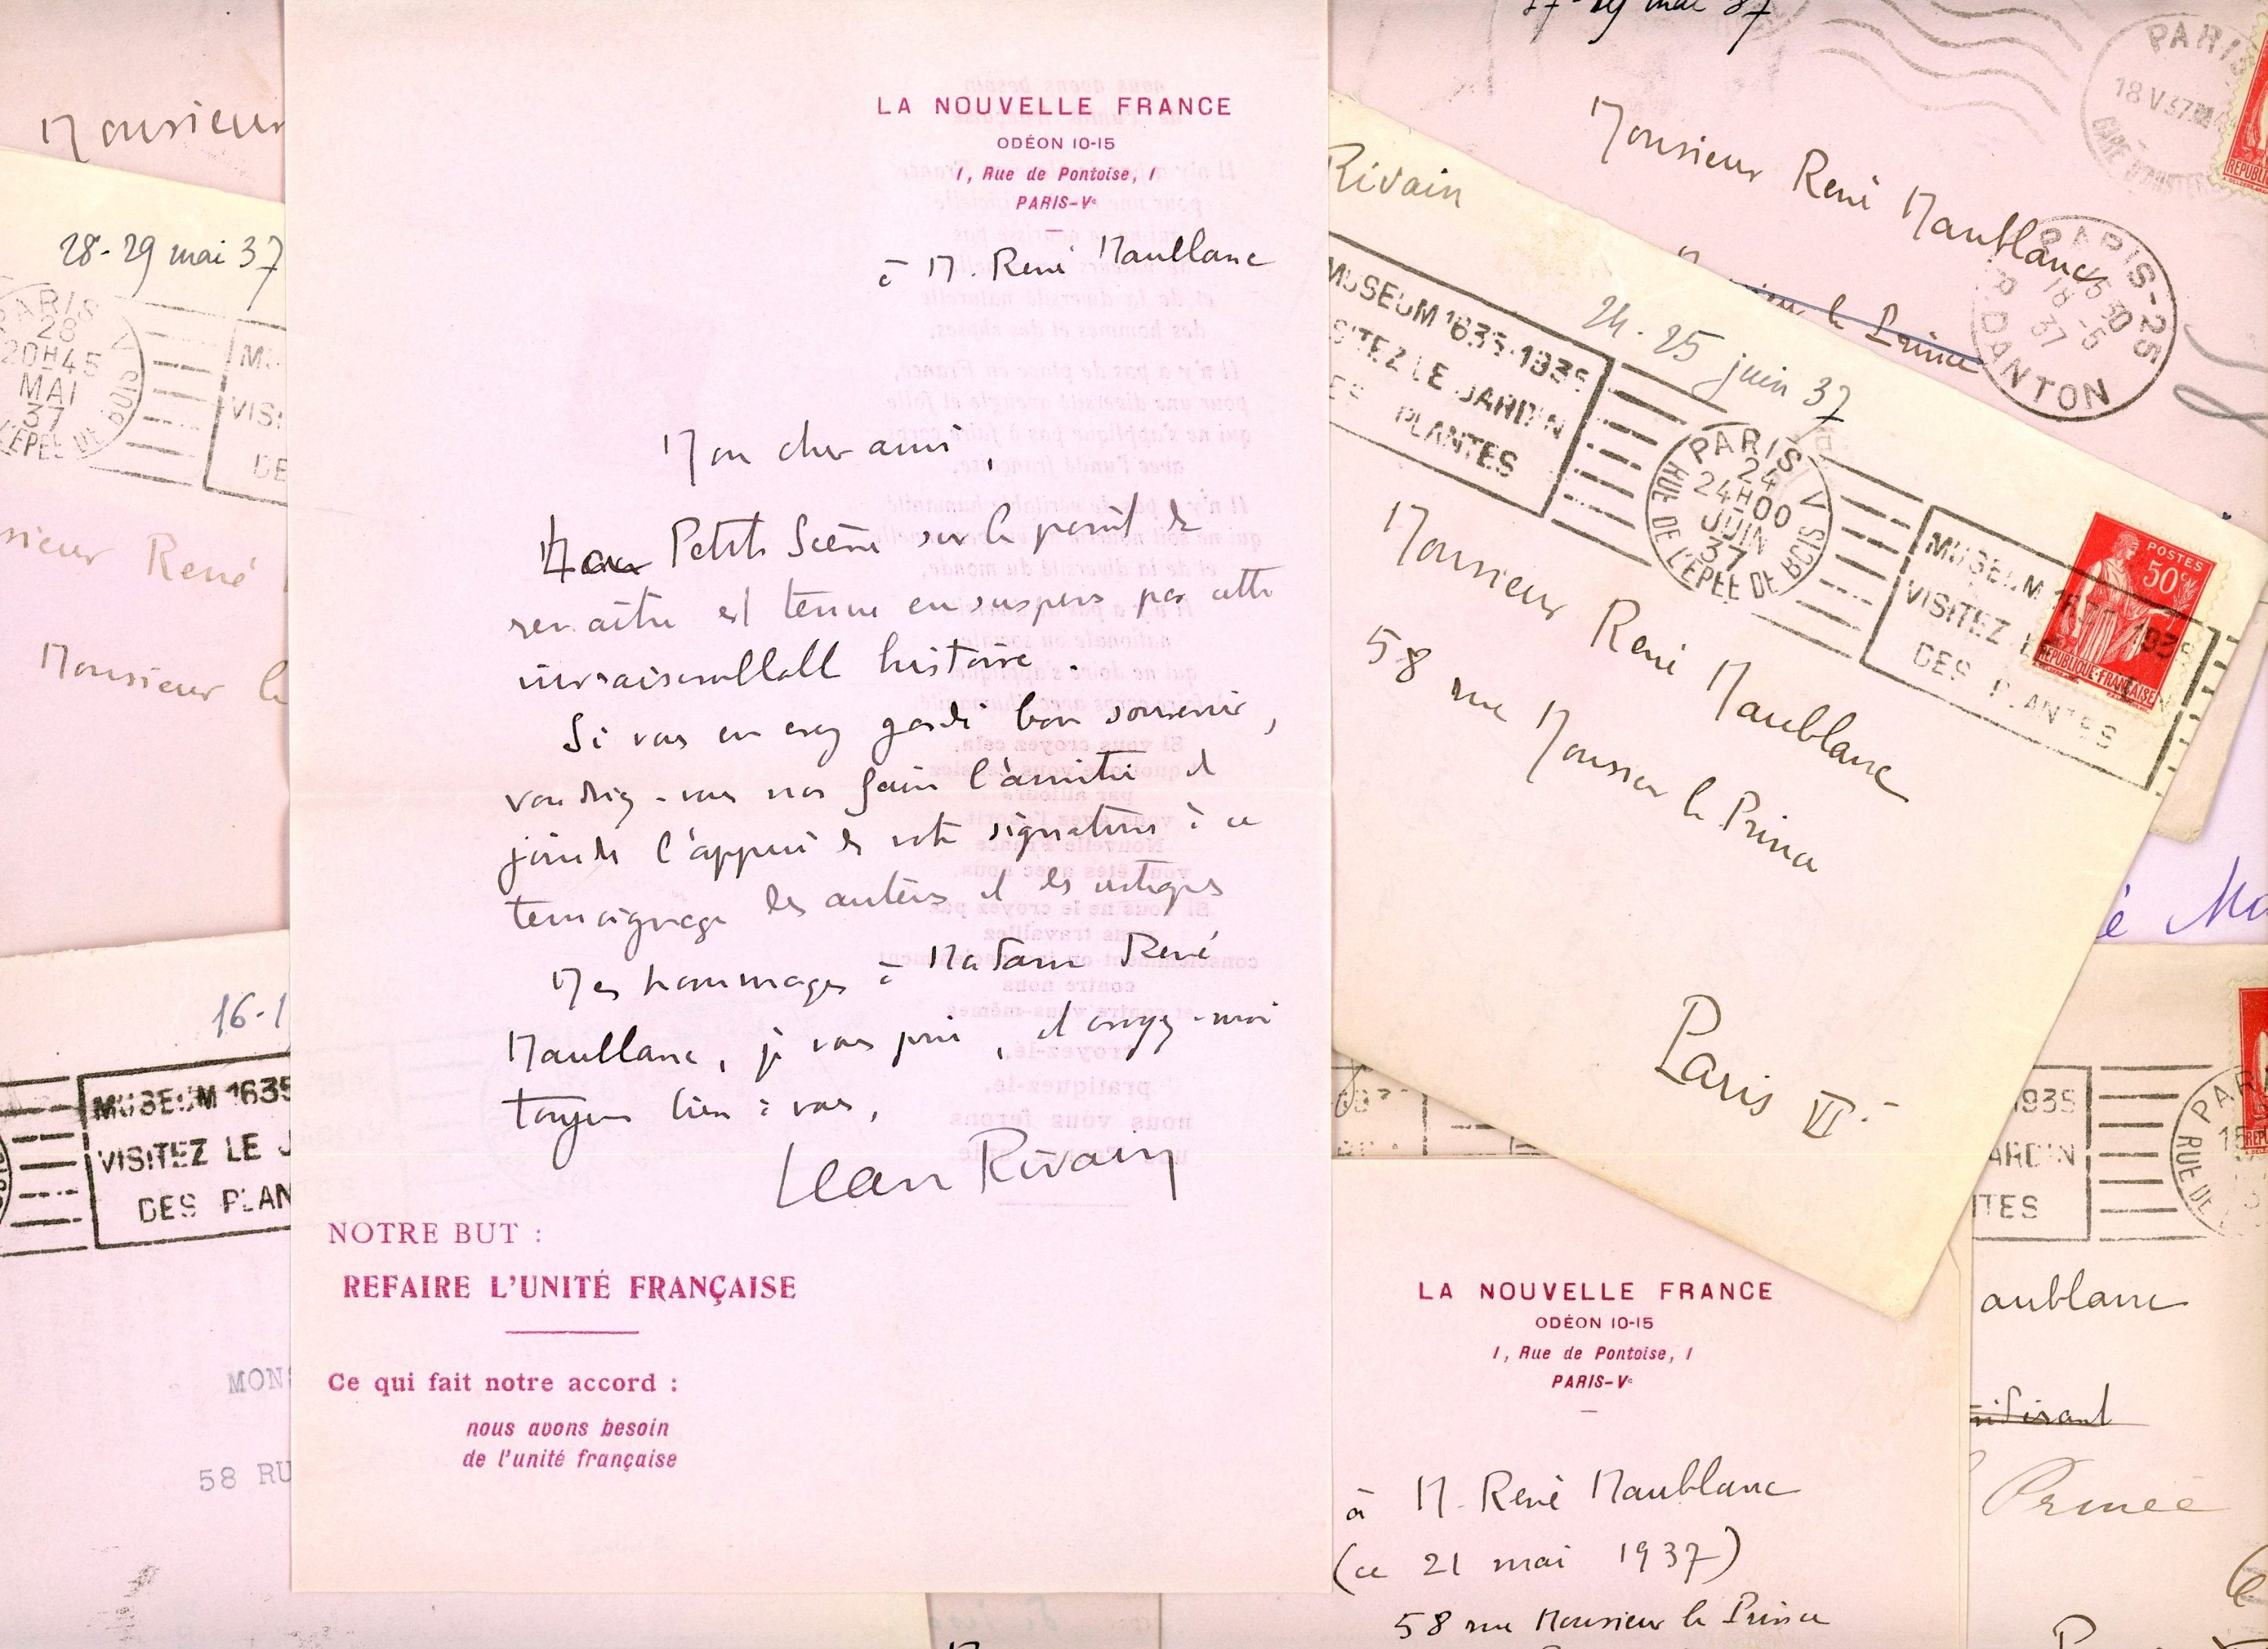 Monsieur
28-29 mai 37
PARIS V
28
20H45
MAI
37
L'ÉPÉE DE BOIS
MU
VIS
DE
sieur René
Monsieur le
16-1
MUSEUM 1635
VISITEZ LE J
DES PLAN
MONS
58 RU
LA NOUVELLE FRANCE
ODÉON 10-15
1, Rue de Pontoise, 1
PARIS-Ve
à M. René Maublanc
Mon cher ami,
Petite Scène sur le point de
renaître est tenue en suspens par cette
invraisemblable histoire.
Si vous en avez gardé bon souvenir,
voudriez-vous nous faire l'amitié de
joindre l'appui de votre signature à ce
témoignage des auteurs et des critiques
Mes hommages à Madame René
Maublanc, je vous prie, et croyez-moi
toujours bien à vous,
Jean Rivain
NOTRE BUT :
REFAIRE L'UNITÉ FRANÇAISE
Ce qui fait notre accord :
nous avons besoin
de l'unité française
29 mai 37
PARIS
18 V 37
GARE D'AUSTERLITZ
Monsieur René Maublanc
Monsieur le Prince
PARIS-25
15 30
18-5
37
R. DANTON
Rivain
MUSEUM 1635-1935
VISITEZ LE JARDIN
DES PLANTES
24-25 juin 37
PARIS V
24
24H00
JUIN
37
RUE DE L'ÉPÉE DE BOIS
MUSEUM 1635 1935
VISITEZ LE JARDIN
DES PLANTES
POSTES
50c
RÉPUBLIQUE-FRANÇAISE
Monsieur René Maublanc
58 rue Monsieur le Prince
Paris VI
é Ma
1935
ARDIN
TES
PAR
RUE DE
aublanc
Prince
LA NOUVELLE FRANCE
ODÉON 10-15
1, Rue de Pontoise, 1
PARIS-Ve
à M. René Maublanc
(ce 21 mai 1937)
58 rue Monsieur le Prince